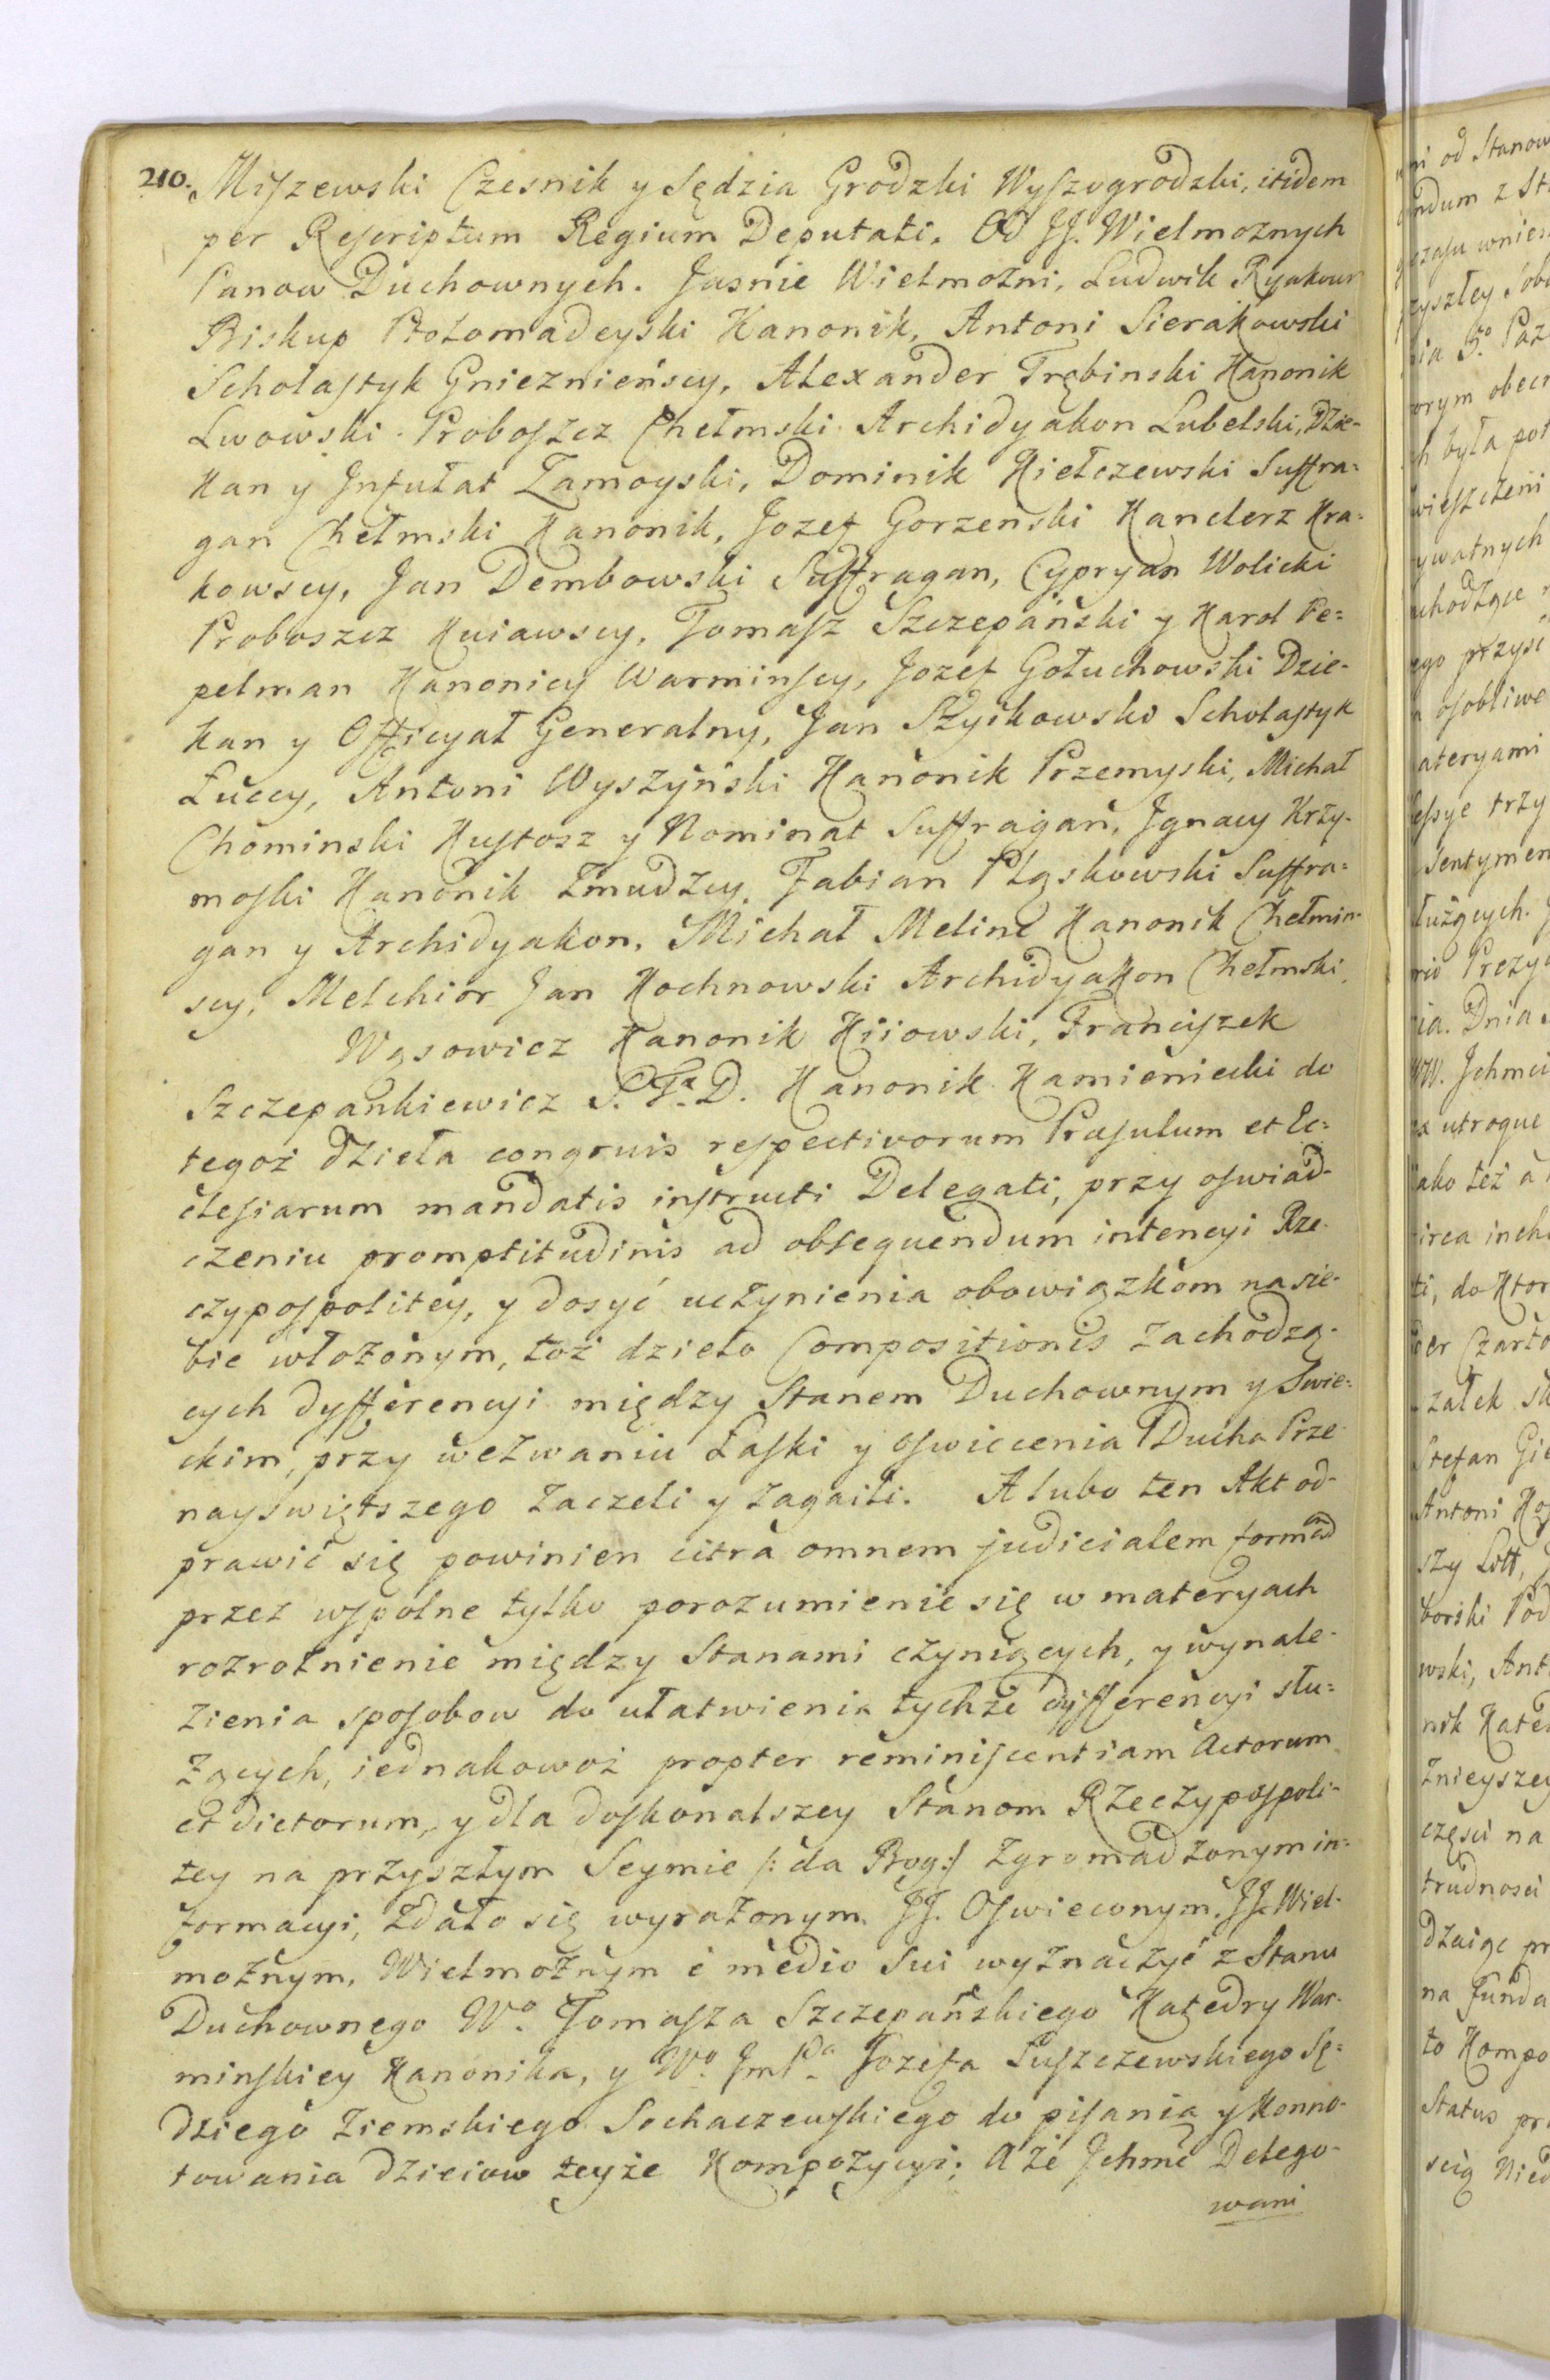 210. Miszewski Czesnik y Sędzia Grodzki Wyszogrodzki, itidem
per Rescriptum Regium Deputati. Od JJ. Wielmoznych
Panow Duchownych. Jasnie Wielmożni, Ludwik
Biskup Ptolomadeyski Kanonik, Antoni Sierakowski
Scholastyk Gnieznieńscy, Alexander Trębinski Kanonik
Lwowski Proboszcz Chełmski Archidyakon Lubelski, Dzie-
kan y Infułat Zamoyski, Dominik Kiełczewski Suffra=
gan Chełmski Kanonik, Jozef Gorzeński Kanclerz Kra=
kowscy, Jan Dembowski Suffragan, Cypryan Wolicki
Proboszcz Kuiawscy, Tomasz Szczepański y Karol Pe=
pelman Kanonicy Warminscy, Jozef Gołuchowski Dzie-
kan y Officyał Generalny, Jan Szyikowski Scholastyk
Łuccy, Antoni Wyszyński Kanonik Przemyski, Michał
Chominski Kustosz y Nominat Suffragan, Jgnacy Krzy-
moski Kanonik Zmudzcy, Fabian Pląskowski Suffra=
gan y Archidyakon, Michał Meline Kanonik Chełmin-
scy, Melchior Jan Kochnowski Archidyakon Chełmski,
Wąsowicz Kanonik Kiiowski, Franciszek
Szczepankiewicz S. Ta. D. Kanonik Kamieniecki do
tegoż dzieła congruis respectivorum Præsulum et Ec=
clesiarum mandatis instructi Delegati, przy oswiad-
czeniu promptitudinis ad obsequendum intencyi Rze-
czypospolitey, y dosyć uczynienia obowiązkom na sie-
bie włożonym, toż dzieło Compositionis zachodzą-
cych dyfferencyi między Stanem Duchownym y Swie-
ckim, przy wezwaniu Łaski y oswiecenia Ducha Prze-
nayswiętszego zaczeli y zagaili. A lubo ten Akt od-
prawić się powinien citra omnem judicialem formam
przez wspolne tylko porozumienie się w materyach
rozrożnienie między Stanami czyniących, y wynale-
zienia sposobow do ułatwienia tychże dyfferencyi słu=
żących, iednakowoż propter reminiscentiam Actorum
et dictorum, y dla doskonalszey Stanom Rzeczypospoli-
tey na przyszłym Seymie /: da Bog :/ zgromadzonym in-
formacyi, zdało się wyrażonym JJ. Oswieconym, JJ. Wiel-
możnym, Wielmożnym è medio sui wyznaczyć z Stanu
Duchownego Wo. Tomasza Szczepańskiego Katedry War-
minskiey Kanonika, y Wo. JmPa. Jozefa Łuszczewskiego Sę=
dziego Ziemskiego Sochaczewskiego do pisania y konno-
towania dzieiow teyże Kompozycyi; A że Jchmć Delego-
wani